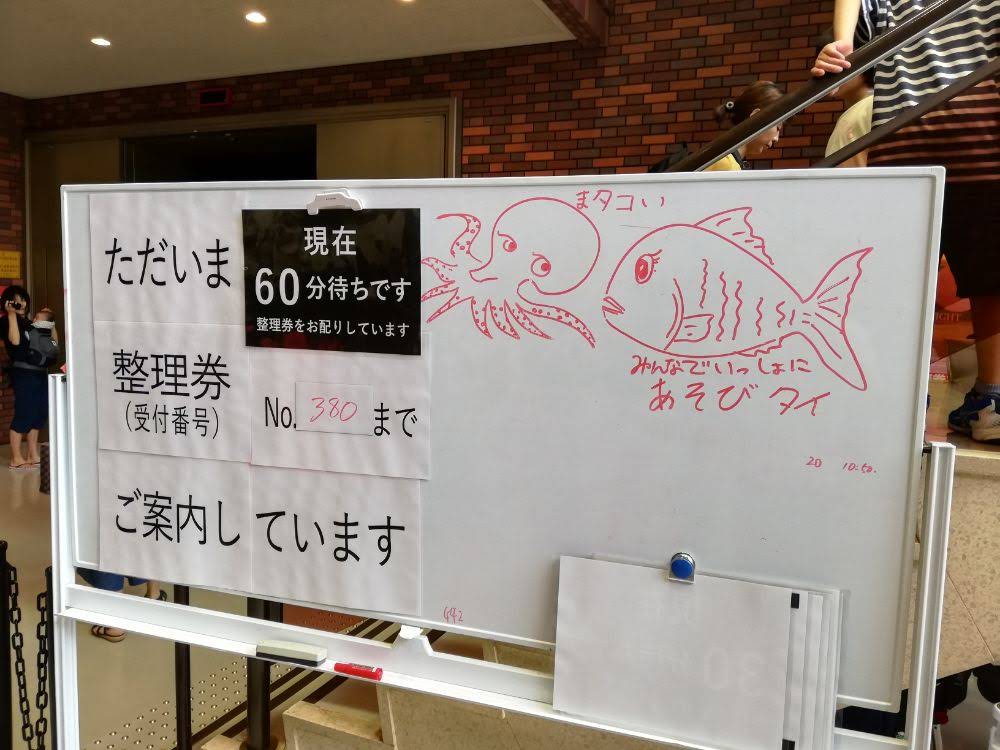 ただいま
現在
60分待ちです
整理券をお配りしています
整理券
(受付番号)
No. 380 まで
ご案内しています
まタコい
みんなでいっしょに
あそびタイ
20 10:50.
442